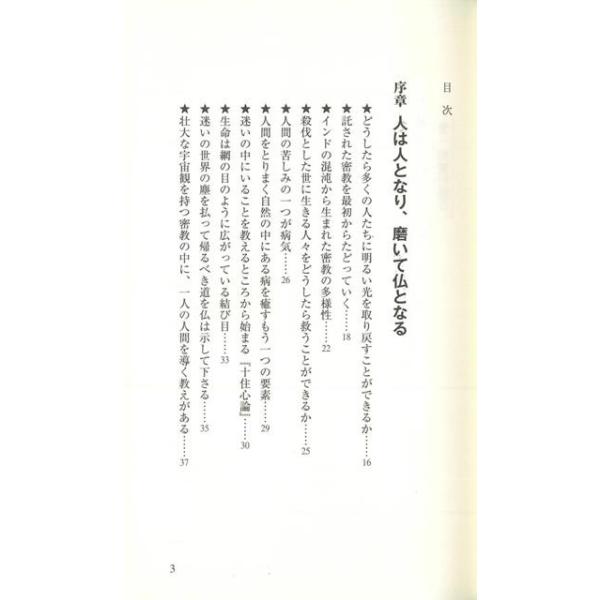 目次
序章 人は人となり、磨いて仏となる
★どうしたら多くの人たちに明るい光を取り戻すことができるか……16
★託された密教を最初からたどっていく……18
★インドの混沌から生まれた密教の多様性……22
★殺伐とした世に生きる人々をどうしたら救うことができるか……25
★人間の苦しみの一つが病気……26
★人間をとりまく自然の中にある病を癒すもう一つの要素……29
★迷いの中にいることを教えるところから始まる『十住心論』……30
★生命は網の目のように広がっている結び目……33
★迷いの世界の塵を払って帰るべき道を仏は示して下さる……35
★壮大な宇宙観を持つ密教の中に、一人の人間を導く教えがある……37
3